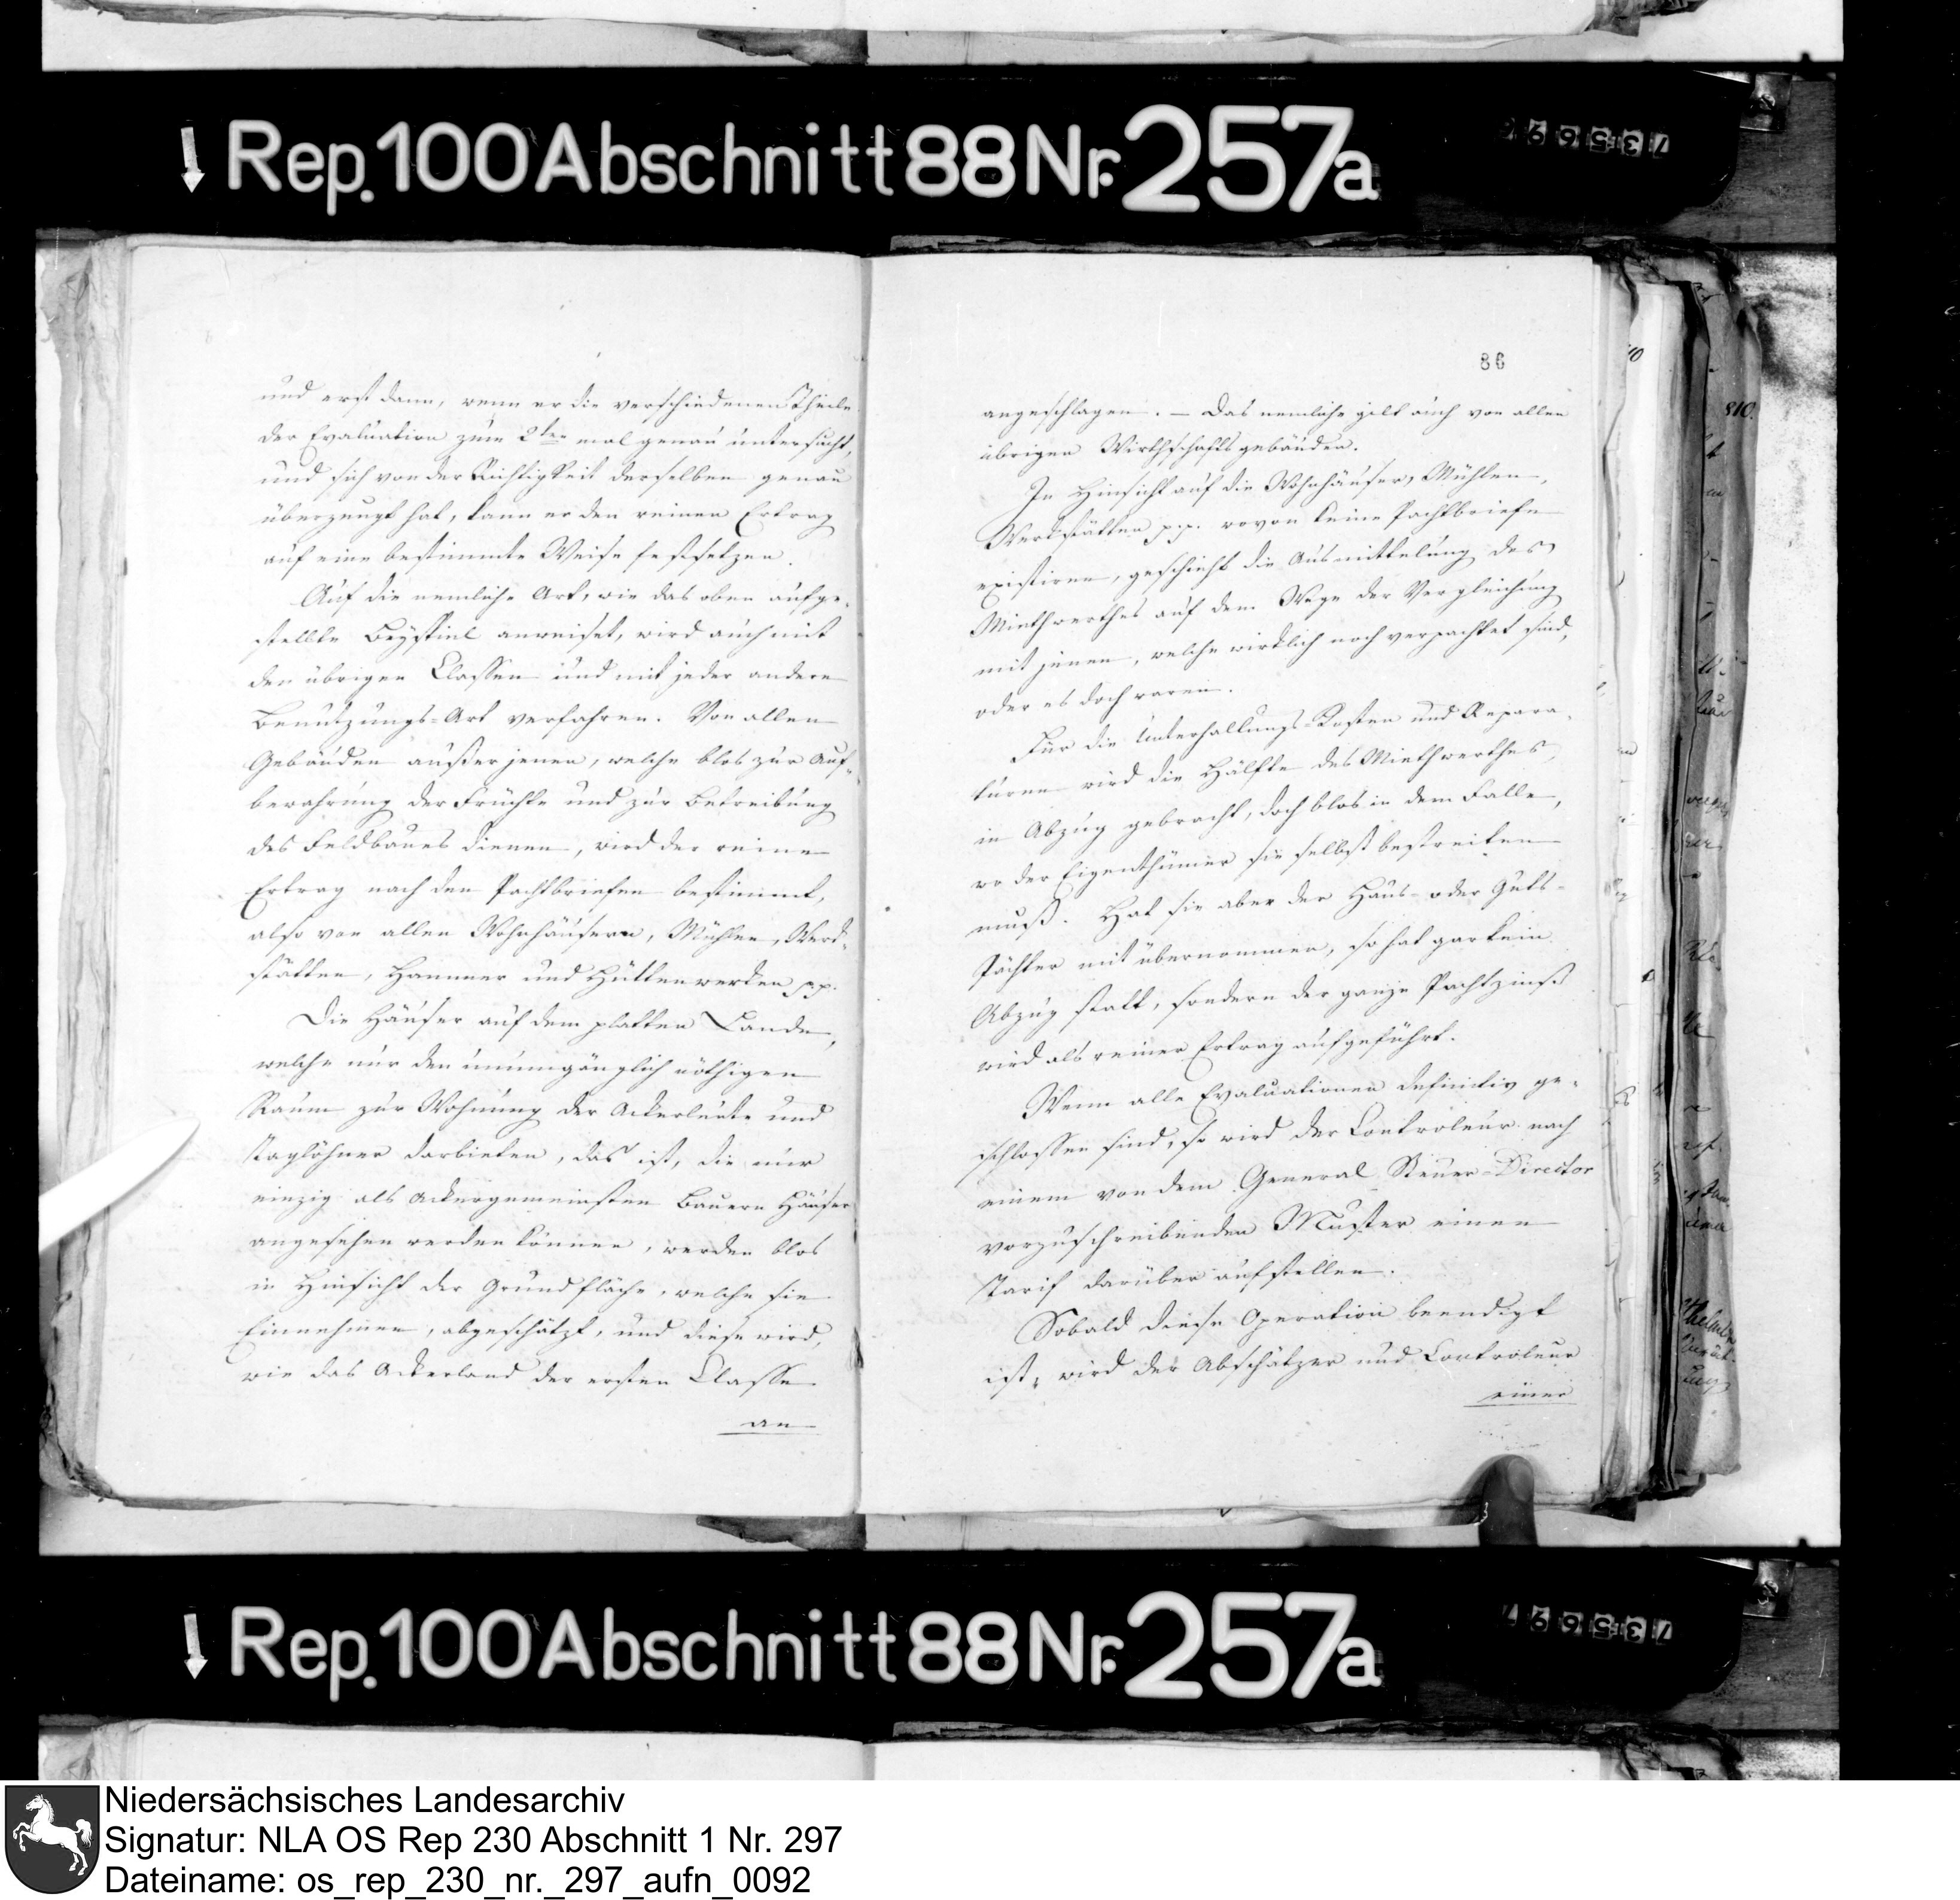 Rep. 100 Abschnitt 88 Nr. 257a
735696
und erst dann, wenn er die verschiedenen Theile
der Evaluation zum 2ten mal genau untersucht,
und sich von der Richtigkeit derselben genau
überzeugt hat, kann er den reinen Ertrag
auf eine bestimmte Weise festsetzen.
Auf die nemliche Art, wie das oben aufge-
stellte Beyspiel anweiset, wird auch mit
den übrigen Classen und mit jeder andern
Benutzungs-Art verfahren. Von allen
Gebäuden außer jenen, welche blos zur Auf-
bewahrung der Früchte und zur Betreibung
des Feldbaues dienen, wird der reine
Ertrag nach den Pachtbriefen bestimmt,
also von allen Wohnhäusern, Mühlen, Werk-
stätten, Hammer und Hüttenwerken pp.
Die Häuser auf dem platten Lande,
welche nur den unumgänglich nöthigen
Raum zur Wohnung der Ackerleute und
Taglöhner darbieten, das ist, die nur
einzig als gemeinsten Bauern Häuser
angesehen werden können, werden blos
in Hinsicht der Grundfläche, welche sie
Einnehmen, abgeschätzt, und diese wird,
wie das Ackerland der ersten Classe
an
86
angeschlagen. – Das nemliche gilt auch von allen
übrigen Wirthschaftsgebäuden.
In Hinsicht auf die Wohnhäuser, Mühlen,
Werkstätten pp. wovon keine Pachtbriefe
existiren, geschieht die Ausmittelung des
Miethwerthes auf dem Wege der Vergleichung
mit jenen, welche wirklich noch verpachtet sind,
oder es doch waren.
Für die Unterhaltungs-Kosten und Repara-
turen wird die Hälfte des Miethwerthes
in Abzug gebracht, doch blos in dem Falle,
wo der Eigenthümer sie selbst bestreiten
muß. Hat sie aber der Haus- oder Guts-
Pächter mit übernommen, so hat gar kein
Abzug statt, sondern der ganze Pachtzinß
wird als reiner Ertrag aufgeführt.
Wenn alle Evaluationen definitiv ge-
schlossen sind, so wird der Controleur nach
einem von dem General Steuer-Director
vorzuschreibenden Muster einen
Tarif darüber aufstellen.
Sobald diese Operation beendigt
ist, wird der Abschätzer und Controleur
einer
810.
Rep. 100 Abschnitt 88 Nr. 257a
735697
Niedersächsisches Landesarchiv
Signatur: NLA OS Rep 230 Abschnitt 1 Nr. 297
Dateiname: os_rep_230_nr._297_aufn_0092